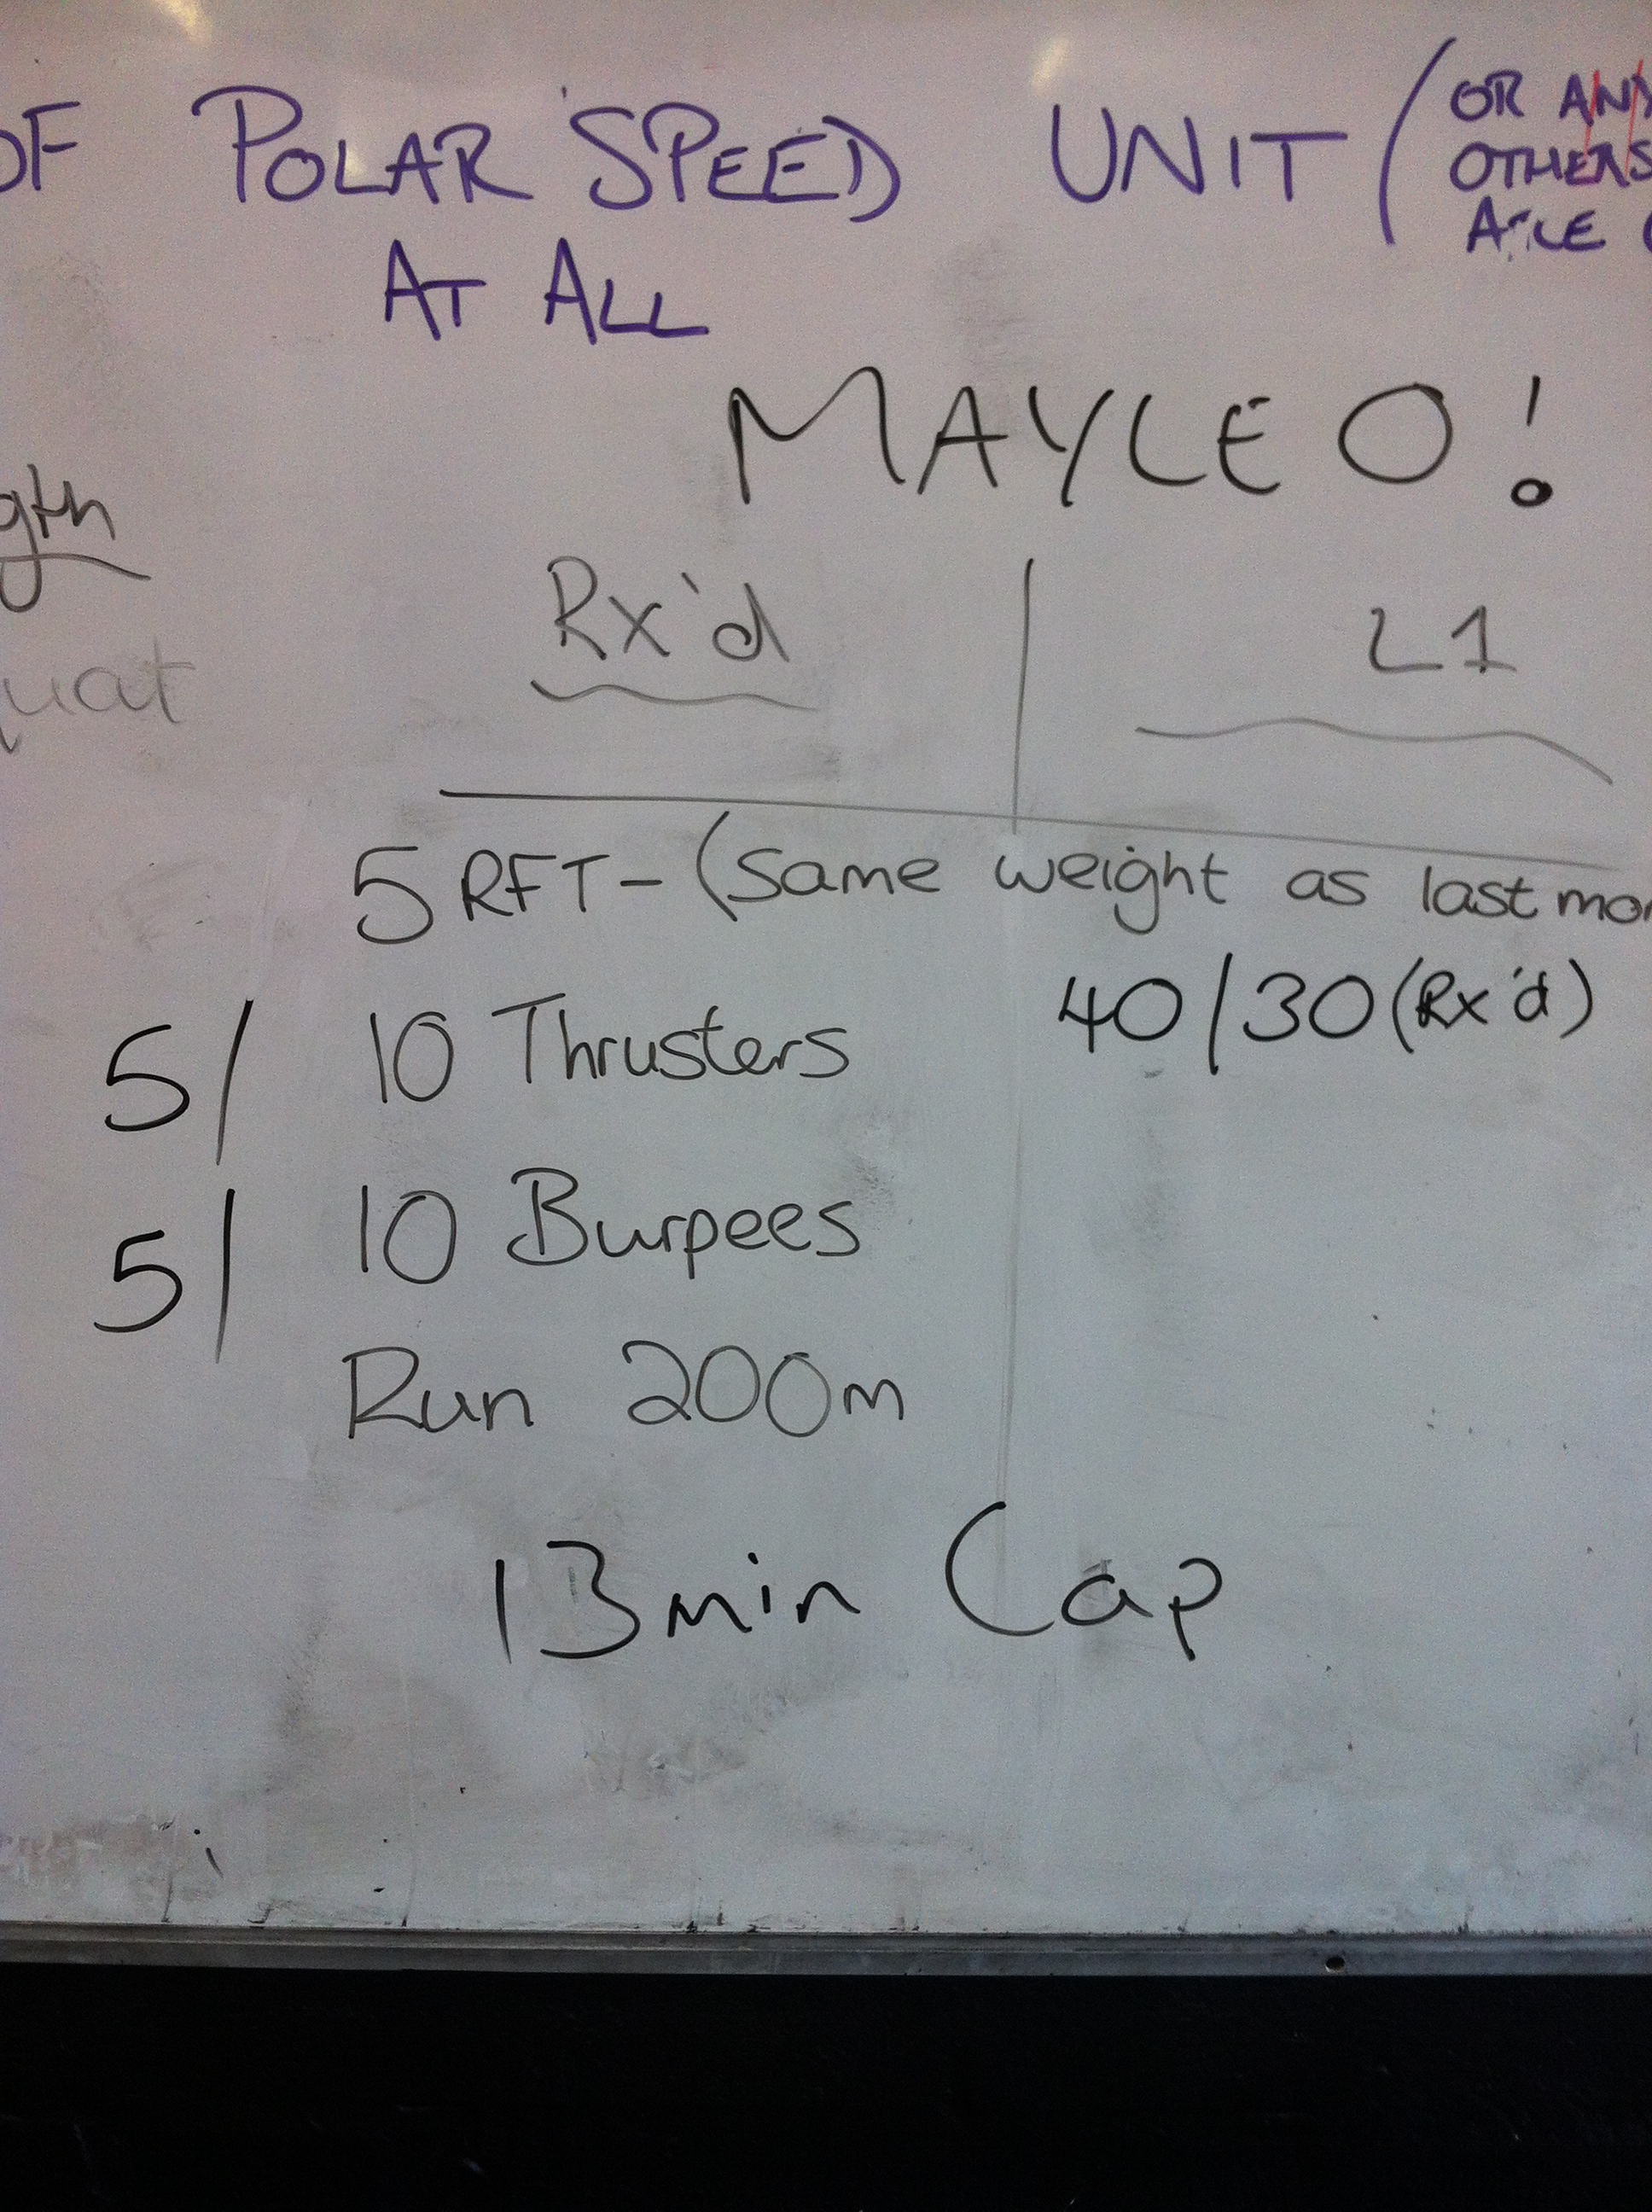 OF POLAR SPEED UNIT (OR AND
OTHERS
AT ALL
MAYLEO!
gth
quat
Rx'd | L1
5 RFT - (same weight as last mon
5/ 10 Thrusters 40/30 (Rx'd)
5/ 10 Burpees
Run 200m
13 min Cap